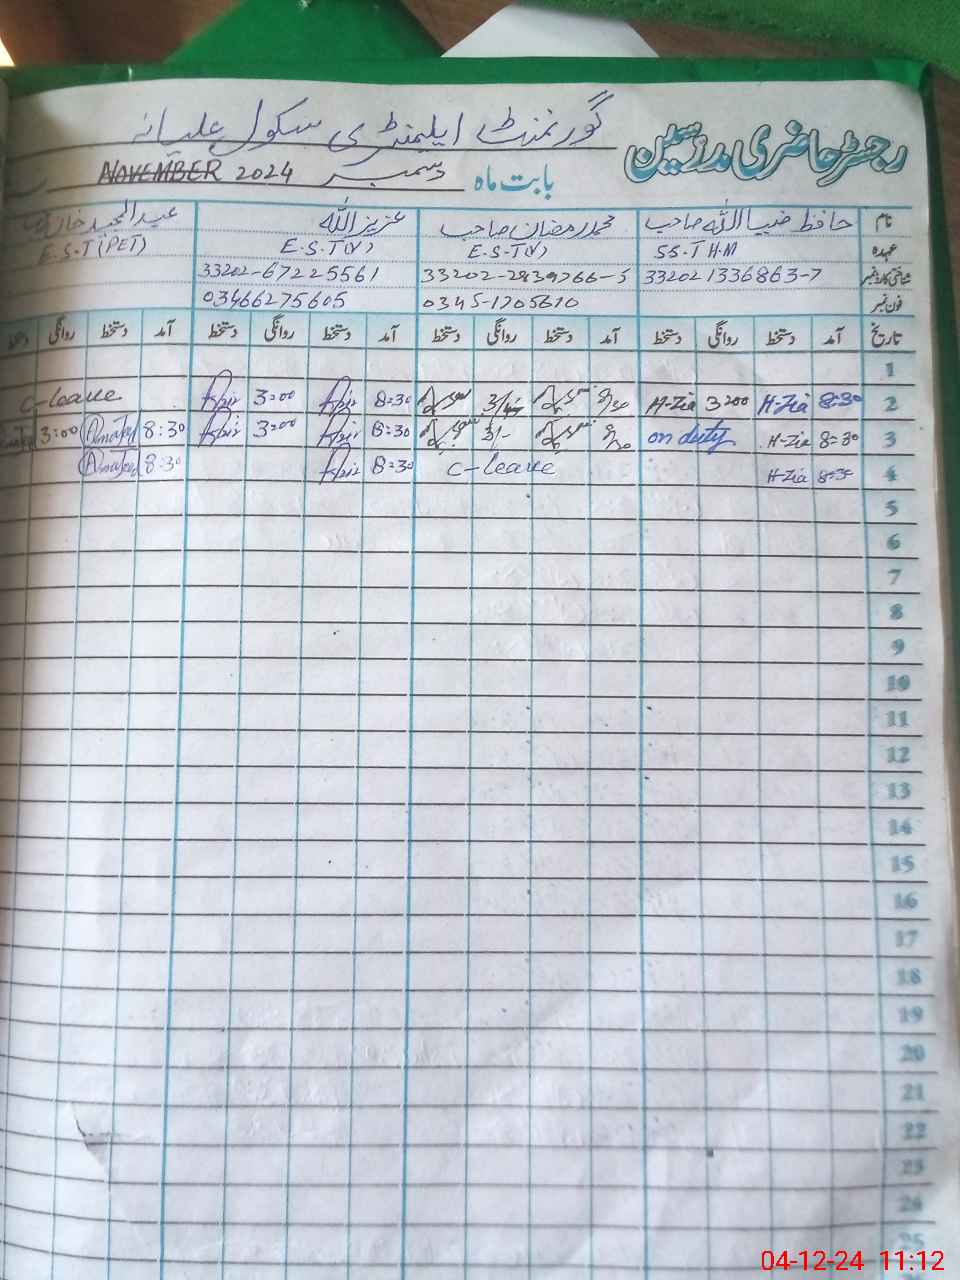 رجسٹر حاضری مدرسین
گورنمنٹ ایلیمنٹری سکول علیانہ
بابت ماہ دسمبر NOVEMBER 2024
نام حافظ ضیا اللہ صاحب محمد رمضان صاحب عزیز اللہ عبدالمجید خان
عہدہ SS.T H.M E.S.T(V) E.S.T(V) E.S.T(PET)
شناختی کارڈ نمبر 332021336863-7 33202-2839766-5 33202-67225561
فون نمبر 0345-1705610 03466275605
تاریخ آمد دستخط روانگی دستخط آمد دستخط روانگی دستخط آمد دستخط روانگی دستخط آمد دستخط روانگی دستخط
1
2 8:30 H-Zia 3:00 H-Zia 8/30 8:30 3:00 C-leave
3 8:30 H-Zia on duty 8/30 3/- 8:30 3:00 8:30 3:00
4 8:30 H-Zia C-leave 8:30 8:30
5
6
7
8
9
10
11
12
13
14
15
16
17
18
19
20
21
22
23
24
25
04-12-24 11:12